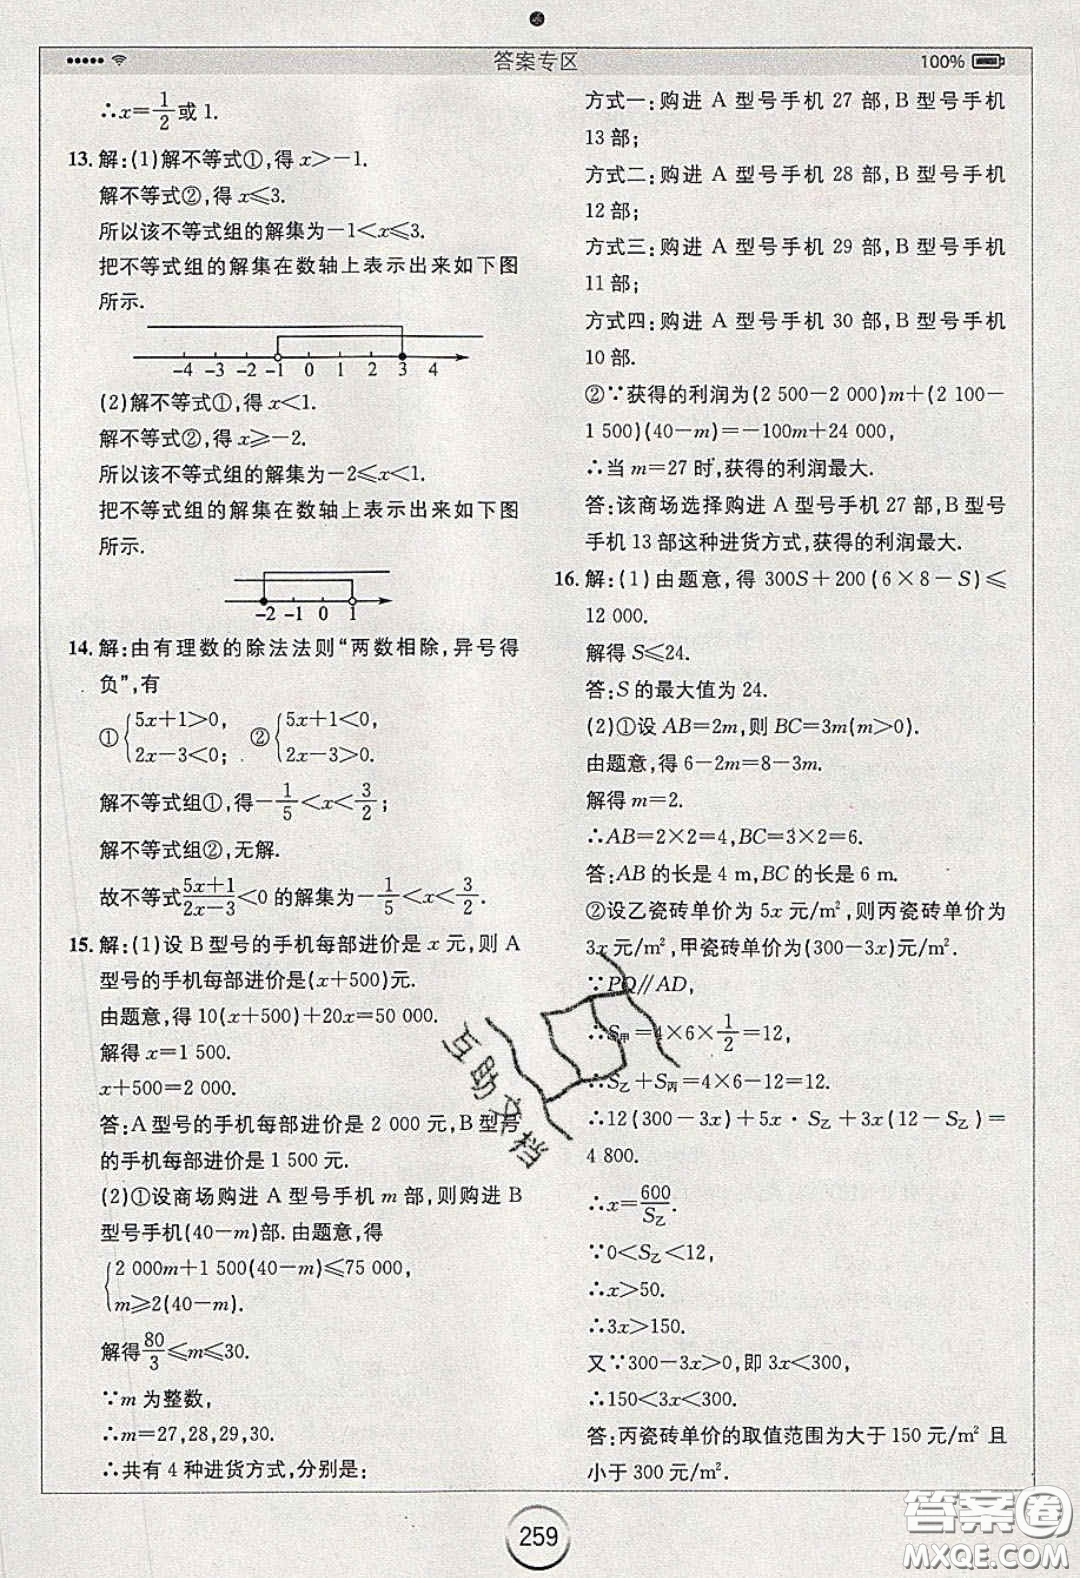 答案专区
100%
∴x=1/2或1.
13. 解:(1)解不等式①,得 x>-1.
解不等式②,得 x≤3.
所以该不等式组的解集为-1<x≤3.
把不等式组的解集在数轴上表示出来如下图
所示.
-4 -3 -2 -1 0 1 2 3 4
(2)解不等式①,得 x<1.
解不等式②,得 x≥-2.
所以该不等式组的解集为-2≤x<1.
把不等式组的解集在数轴上表示出来如下图
所示.
-2 -1 0 1
14. 解:由有理数的除法法则“两数相除,异号得
负”,有
①{5x+1>0, 2x-3<0; ②{5x+1<0, 2x-3>0.
解不等式组①,得-1/5<x<3/2;
解不等式组②,无解.
故不等式(5x+1)/(2x-3)<0 的解集为-1/5<x<3/2.
15. 解:(1)设 B 型号的手机每部进价是 x 元,则 A
型号的手机每部进价是(x+500)元.
由题意,得 10(x+500)+20x=50 000.
解得 x=1 500.
x+500=2 000.
答:A 型号的手机每部进价是 2 000 元,B 型号
的手机每部进价是 1 500 元.
(2)①设商场购进 A 型号手机 m 部,则购进 B
型号手机(40-m)部.由题意,得
{2 000m+1 500(40-m)≤75 000,
m≥2(40-m).
解得80/3≤m≤30.
∵m 为整数,
∴m=27,28,29,30.
∴共有 4 种进货方式,分别是:
方式一:购进 A 型号手机 27 部,B 型号手机
13 部;
方式二:购进 A 型号手机 28 部,B 型号手机
12 部;
方式三:购进 A 型号手机 29 部,B 型号手机
11 部;
方式四:购进 A 型号手机 30 部,B 型号手机
10 部.
②∵获得的利润为(2 500-2 000)m+(2 100-
1 500)(40-m)=-100m+24 000,
∴当 m=27 时,获得的利润最大.
答:该商场选择购进 A 型号手机 27 部,B 型号
手机 13 部这种进货方式,获得的利润最大.
16. 解:(1)由题意,得 300S+200(6×8-S)≤
12 000.
解得 S≤24.
答:S 的最大值为 24.
(2)①设 AB=2m,则 BC=3m(m>0).
由题意,得 6-2m=8-3m.
解得 m=2.
∴AB=2×2=4,BC=3×2=6.
答:AB 的长是 4 m,BC 的长是 6 m.
②设乙瓷砖单价为 5x 元/m²,则丙瓷砖单价为
3x 元/m²,甲瓷砖单价为(300-3x)元/m².
∵PQ∥AD,
∴S甲=4×6×1/2=12,
∴S乙+S丙=4×6-12=12.
∴12(300-3x)+5x·S乙+3x(12-S乙)=
4 800.
∴x=600/S乙.
∵0<S乙<12,
∴x>50.
∴3x>150.
又∵300-3x>0,即 3x<300,
∴150<3x<300.
答:丙瓷砖单价的取值范围为大于 150 元/m² 且
小于 300 元/m².
259
互助文档
答案圈
MXQE.COM